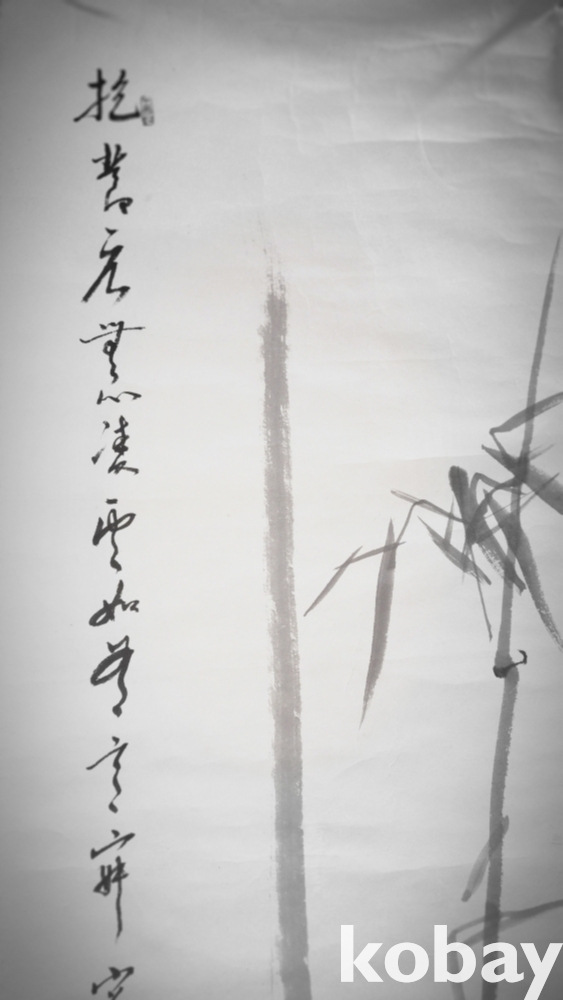 抱節元無心凌雲如有意寂
kobay